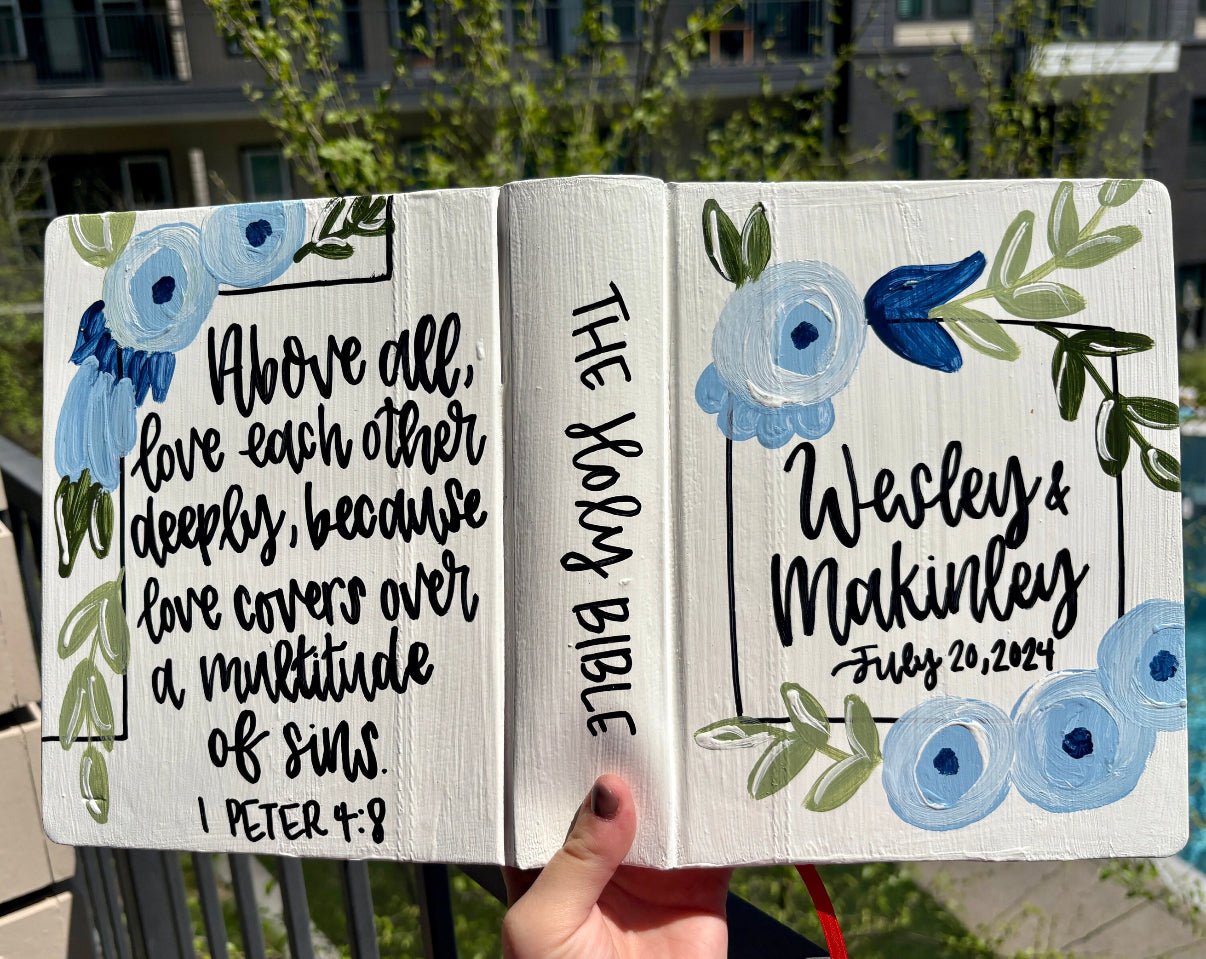 Above all,
love each other
deeply, because
love covers over
a multitude
of sins.
1 PETER 4:8
THE Holy BIBLE
Wesley &
Makinley
July 20, 2024